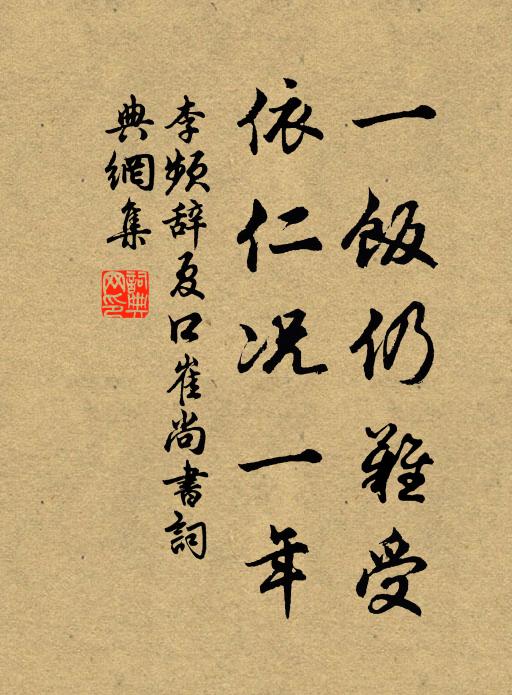 一飯仍難受
依仁況一年
李頻辞夏口崔尚書詞
典網集
詞典
网印